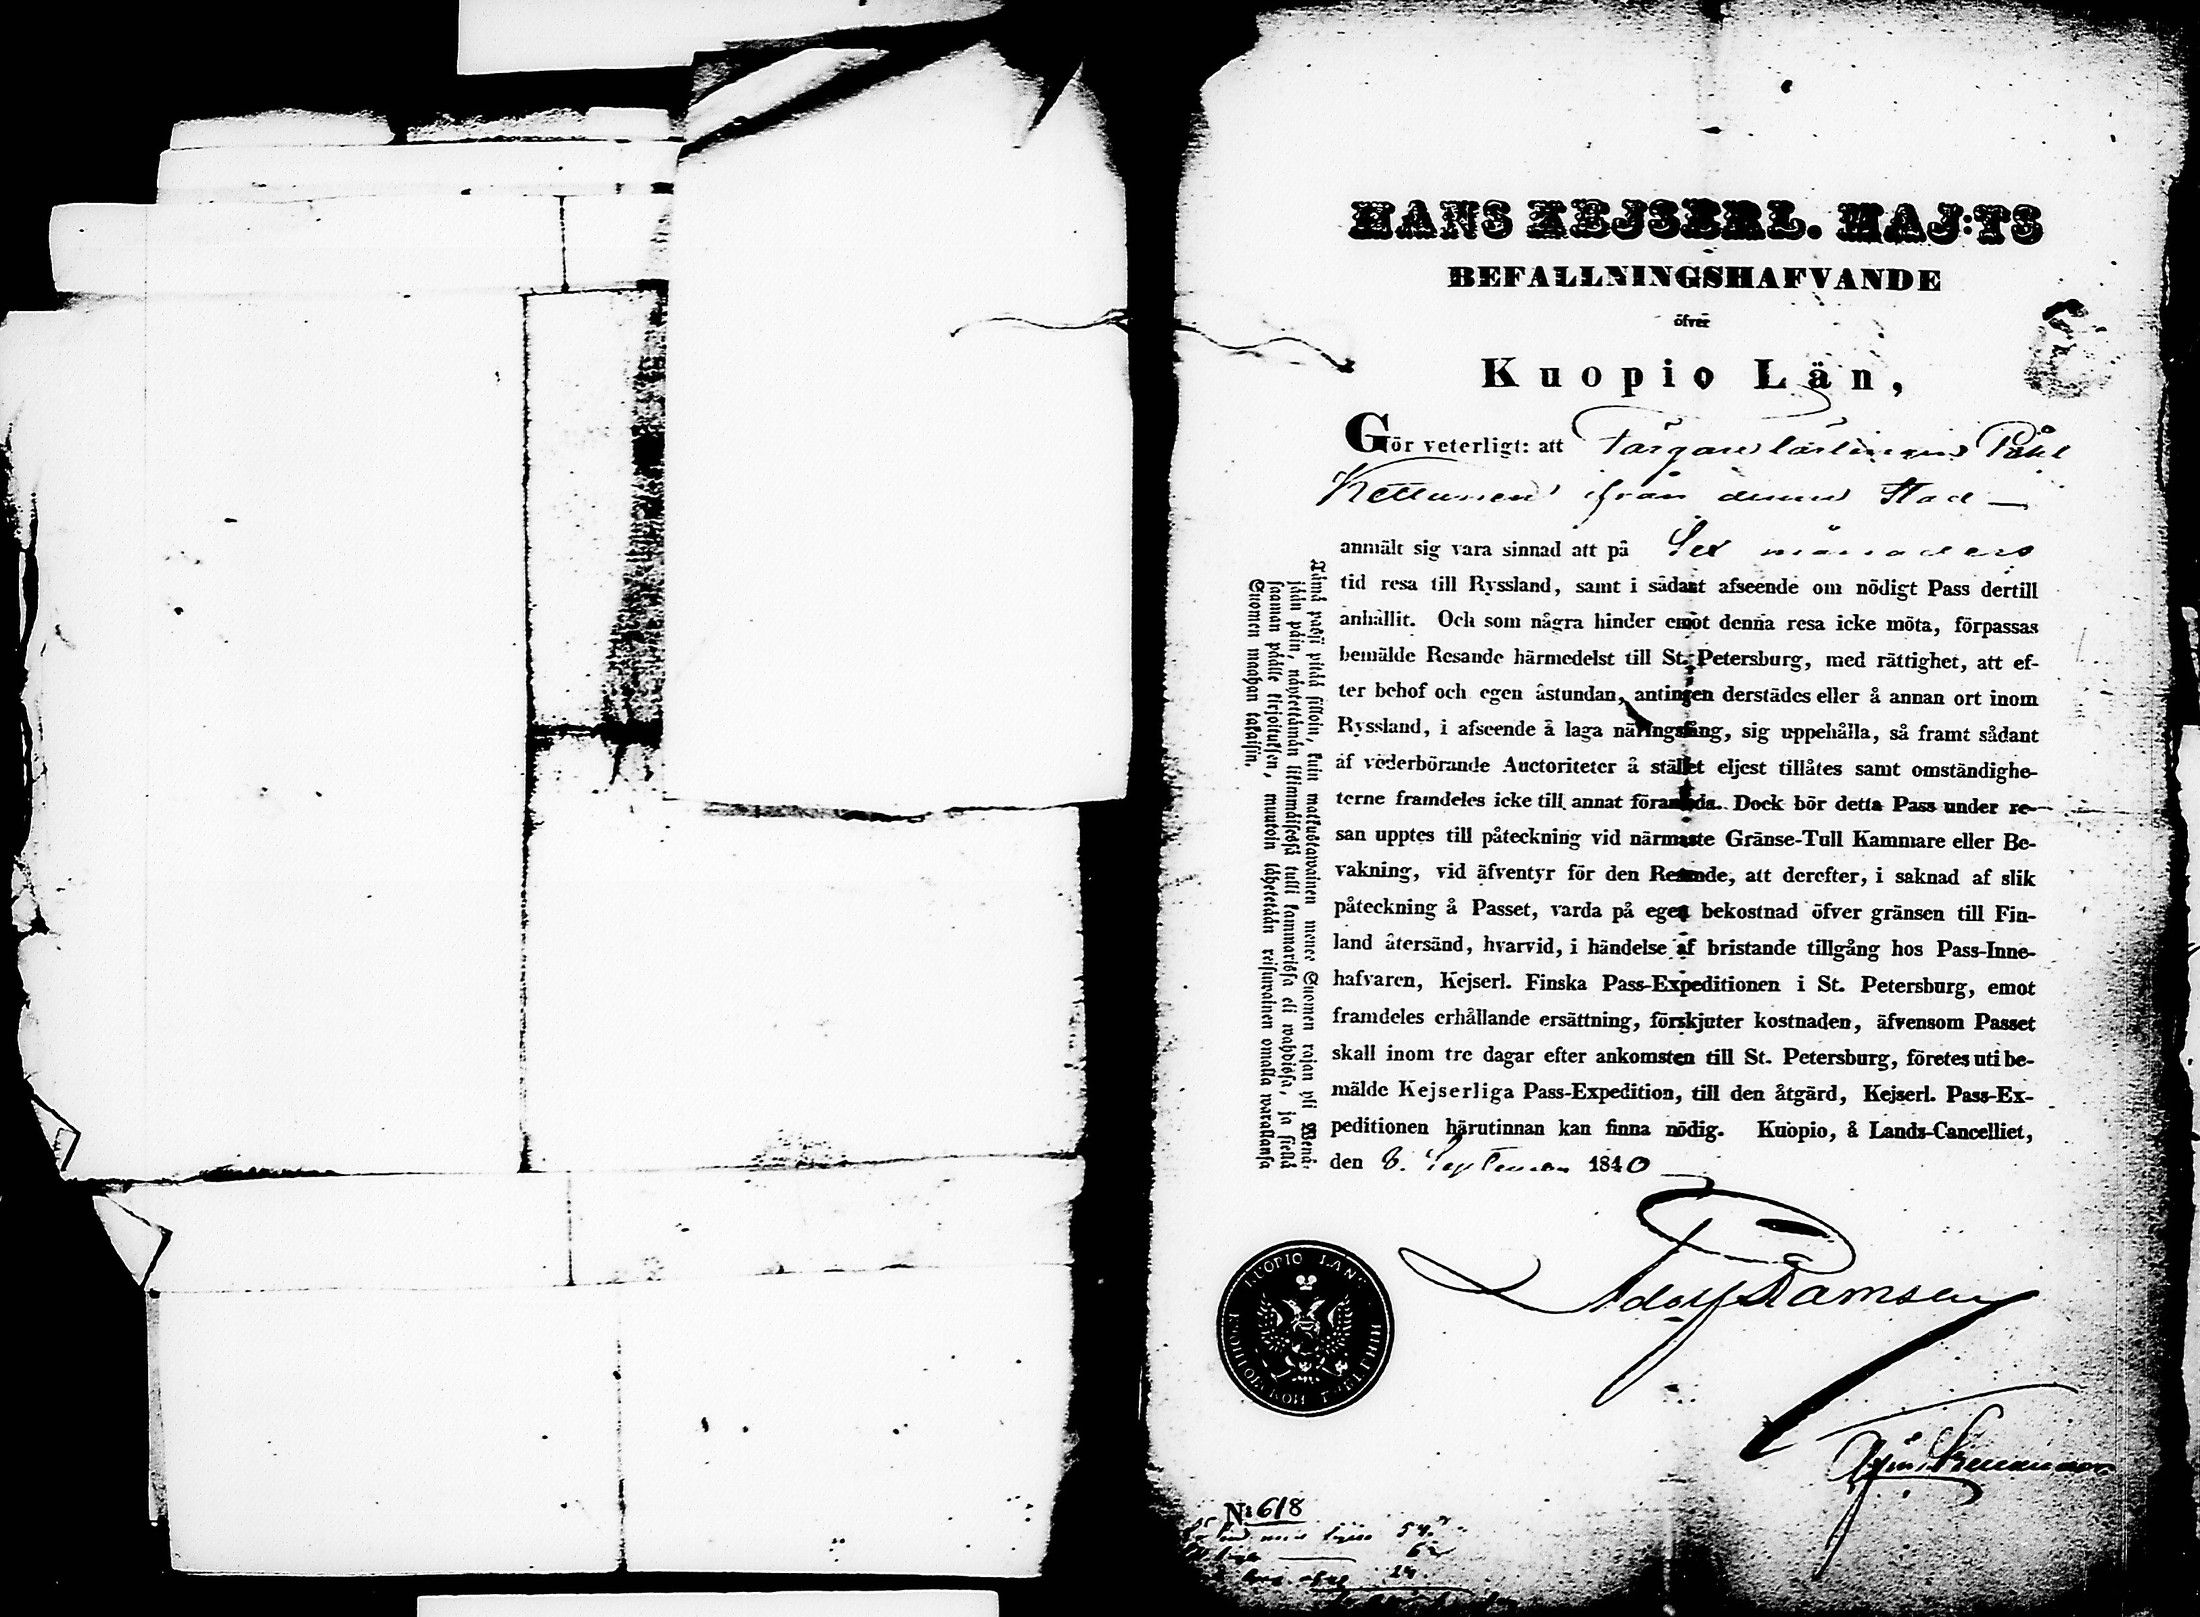 HANS KEJSERL. MAJ:TS
BEFALLNINGSHAFVANDE
öfver
Kuopio Län,
Gör veterligt: att Färgare lärlingen Påhl
Kettunen ifrån denne Stad —
anmält sig vara sinnad att på Sex månaders
tid resa till Ryssland, samt i sådant afseende om nödigt Pass dertill
anhållit. Och som några hinder emot denna resa icke möta, förpassas
bemälde Resande härmedelst till St. Petersburg, med rättighet, att ef-
ter behof och egen åstundan, antingen derstädes eller å annan ort inom
Ryssland, i afseende å laga näringsfång, sig uppehålla, så framt sådant
af vederbörande Auctoriteter å stället eljest tillåtes samt omständighe-
terne framdeles icke till annat föranleda. Dock bör detta Pass under re-
san upptes till påteckning vid närmaste Gränse-Tull Kammare eller Be-
vakning, vid äfventyr för den Resande, att derefter, i saknad af slik
påteckning å Passet, varda på egen bekostnad öfver gränsen till Fin-
land återsänd, hvarvid, i händelse af bristande tillgång hos Pass-Inne-
hafvaren, Kejserl. Finska Pass-Expeditionen i St. Petersburg, emot
framdeles erhållande ersättning, förskjuter kostnaden, äfvensom Passet
skall inom tre dagar efter ankomsten till St. Petersburg, företes uti be-
mälde Kejserliga Pass-Expedition, till den åtgärd, Kejserl. Pass-Ex-
peditionen härutinnan kan finna nödig. Kuopio, å Lands-Cancelliet,
den 8. September 1840
Tämä passi pitää silloin, kuin matkustawainen menee Suomen rajan yli Wenä-
jään päin, näytettämän likimmäisessä tulli kammarissa eli wahdissa, ja siellä
saaman päälle kirjoituksen, muutoin lähetetään reisuwainen omalla warallansa
Suomen maahan takaisin.
Adolf Ramsay
KUOPIO LÄNS
N: 618
54.
24.